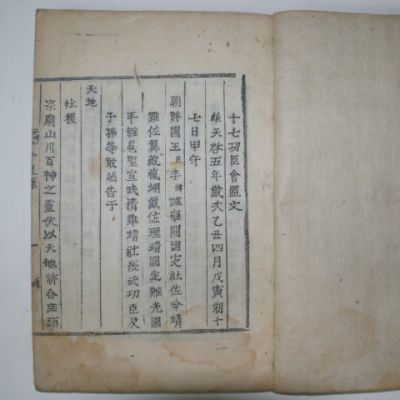 十七功臣會盟文
維天啓五年歲次乙丑四月戊寅朔十
七日甲午
朝鮮國王臣李諱謹率開國定社佐命靖
難佐翼敵愾翊戴佐理靖國定難光國
平難扈聖宣武清難靖社振武功臣及
子孫等敢昭告于
天地
社稷
宗廟山川百神之靈伏以天地訢合庶類